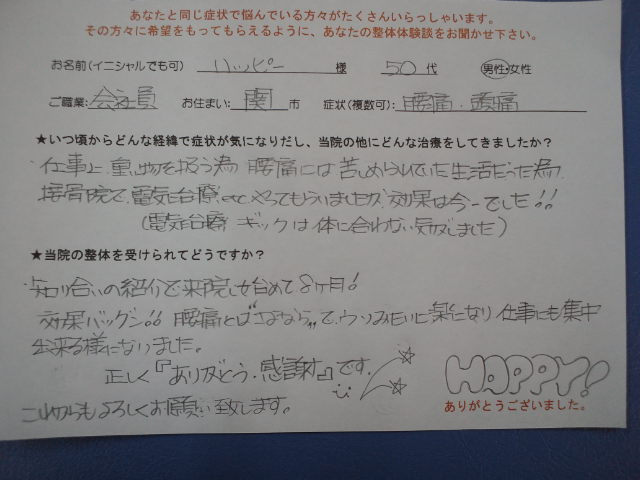 あなたと同じ症状で悩んでいる方々がたくさんいらっしゃいます。
その方々に希望をもってもらえるように、あなたの整体体験談をお聞かせ下さい。
お名前(イニシャルでも可) ハッピー 様 50代 男性・女性
ご職業: 会社員 お住まい: 関市 症状(複数可): 腰痛・頭痛
★いつ頃からどんな経緯で症状が気になりだし、当院の他にどんな治療をしてきましたか?
仕事上、重い物を扱う為 腰痛には苦しめられていた生活だった為、
接骨院で、電気治療、etc、やってもらいましたが、効果は今一でした!!
(電気治療 ギックは体に合わない気がしました)
★当院の整体を受けられてどうですか?
知り合いの紹介で来院し始めて8ヶ月!
効果バツグン!! 腰痛とは"さよなら"で、ウソみたいに楽になり 仕事にも集中
出来る様になりました。
正しく『ありがとう、感謝』です。
HAPPY!
これからもよろしくお願い致します。
ありがとうございました。